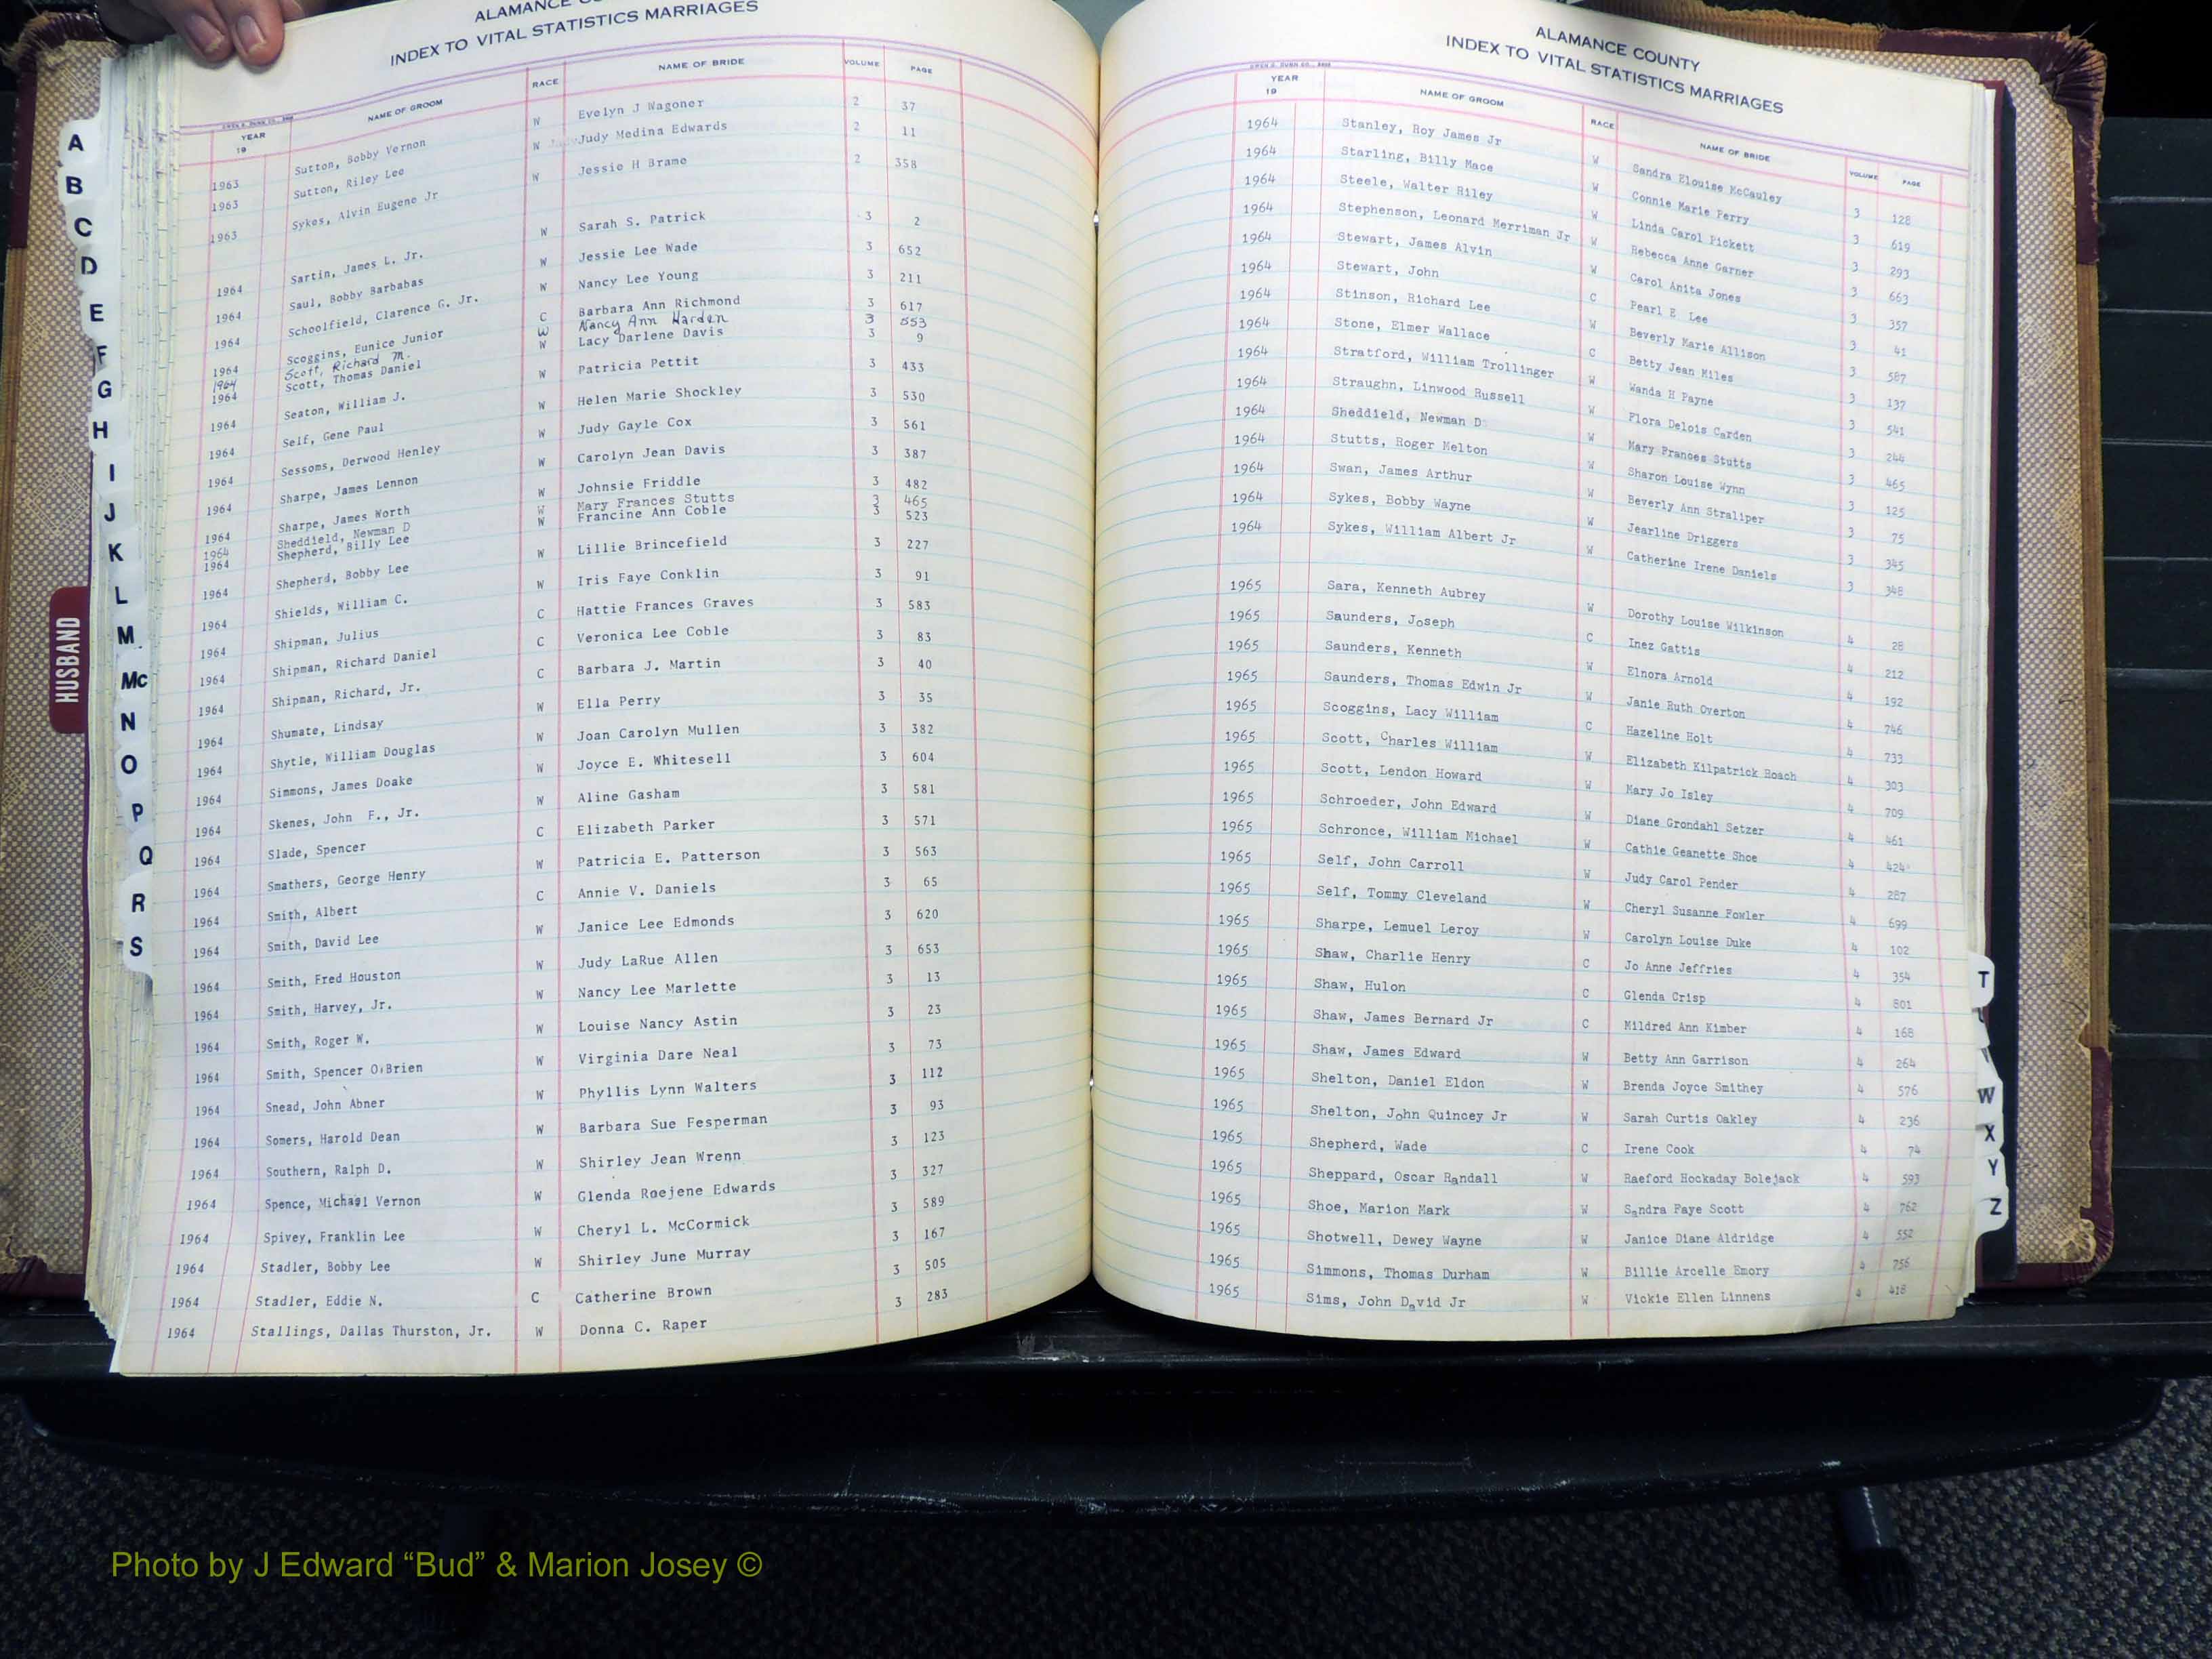 ALAMANCE
INDEX TO VITAL STATISTICS MARRIAGES
YEAR 19 NAME OF GROOM RACE NAME OF BRIDE VOLUME PAGE
1963 Sutton, Bobby Vernon W Evelyn J Wagoner 2 37
1963 Sutton, Riley Lee W Judy Medina Edwards 2 11
1963 Sykes, Alvin Eugene Jr W Jessie H Brame 2 358
1964 Sartin, James L. Jr. W Sarah S. Patrick 3 2
1964 Saul, Bobby Barbabas W Jessie Lee Wade 3 652
1964 Schoolfield, Clarence G. Jr. W Nancy Lee Young 3 211
1964 Scoggins, Eunice Junior C Barbara Ann Richmond 3 617
1964 Scott, Richard M. W Nancy Ann Harden 3 553
1964 Scott, Thomas Daniel W Lacy Darlene Davis 3 9
1964 Seaton, William J. W Patricia Pettit 3 433
1964 Self, Gene Paul W Helen Marie Shockley 3 530
1964 Sessoms, Derwood Henley W Judy Gayle Cox 3 561
1964 Sharpe, James Lennon W Carolyn Jean Davis 3 387
1964 Sharpe, James Worth W Johnsie Friddle 3 482
1964 Sheddield, Newman D W Mary Frances Stutts 3 465
1964 Shepherd, Billy Lee W Francine Ann Coble 3 523
1964 Shepherd, Bobby Lee W Lillie Brincefield 3 227
1964 Shields, William C. W Iris Faye Conklin 3 91
1964 Shipman, Julius C Hattie Frances Graves 3 583
1964 Shipman, Richard Daniel C Veronica Lee Coble 3 83
1964 Shipman, Richard, Jr. C Barbara J. Martin 3 40
1964 Shumate, Lindsay W Ella Perry 3 35
1964 Shytle, William Douglas W Joan Carolyn Mullen 3 382
1964 Simmons, James Doake W Joyce E. Whitesell 3 604
1964 Skenes, John F., Jr. W Aline Gasham 3 581
1964 Slade, Spencer C Elizabeth Parker 3 571
1964 Smathers, George Henry W Patricia E. Patterson 3 563
1964 Smith, Albert C Annie V. Daniels 3 65
1964 Smith, David Lee W Janice Lee Edmonds 3 620
1964 Smith, Fred Houston W Judy LaRue Allen 3 653
1964 Smith, Harvey, Jr. W Nancy Lee Marlette 3 13
1964 Smith, Roger W. W Louise Nancy Astin 3 23
1964 Smith, Spencer O'Brien W Virginia Dare Neal 3 73
1964 Snead, John Abner W Phyllis Lynn Walters 3 112
1964 Somers, Harold Dean W Barbara Sue Fesperman 3 93
1964 Southern, Ralph D. W Shirley Jean Wrenn 3 123
1964 Spence, Michael Vernon W Glenda Roejene Edwards 3 327
1964 Spivey, Franklin Lee W Cheryl L. McCormick 3 589
1964 Stadler, Bobby Lee W Shirley June Murray 3 167
1964 Stadler, Eddie N. C Catherine Brown 3 505
1964 Stallings, Dallas Thurston, Jr. W Donna C. Raper 3 283
A
B
C
D
E
F
G
H
I
J
K
L
M
Mc
N
O
P
Q
R
S
HUSBAND
ALAMANCE COUNTY
INDEX TO VITAL STATISTICS MARRIAGES
YEAR 19 NAME OF GROOM RACE NAME OF BRIDE VOLUME PAGE
1964 Stanley, Roy James Jr W Sandra Elouise McCauley 3 128
1964 Starling, Billy Mace W Connie Marie Perry 3 619
1964 Steele, Walter Riley W Linda Carol Pickett 3 293
1964 Stephenson, Leonard Merriman Jr W Rebecca Anne Garner 3 663
1964 Stewart, James Alvin W Carol Anita Jones 3 357
1964 Stewart, John C Pearl E Lee 3 41
1964 Stinson, Richard Lee W Beverly Marie Allison 3 587
1964 Stone, Elmer Wallace C Betty Jean Miles 3 137
1964 Stratford, William Trollinger W Wanda H Payne 3 541
1964 Straughn, Linwood Russell W Flora Delois Carden 3 244
1964 Sheddield, Newman D W Mary Frances Stutts 3 465
1964 Stutts, Roger Melton W Sharon Louise Wynn 3 125
1964 Swan, James Arthur W Beverly Ann Straliper 3 75
1964 Sykes, Bobby Wayne W Jearline Driggers 3 345
1964 Sykes, William Albert Jr W Catherine Irene Daniels 3 348
1965 Sara, Kenneth Aubrey W Dorothy Louise Wilkinson 4 28
1965 Saunders, Joseph C Inez Gattis 4 212
1965 Saunders, Kenneth W Elnora Arnold 4 192
1965 Saunders, Thomas Edwin Jr W Janie Ruth Overton 4 746
1965 Scoggins, Lacy William C Hazeline Holt 4 733
1965 Scott, Charles William W Elizabeth Kilpatrick Roach 4 303
1965 Scott, Lendon Howard W Mary Jo Isley 4 709
1965 Schroeder, John Edward W Diane Grondahl Setzer 4 461
1965 Schronce, William Michael W Cathie Geanette Shoe 4 424
1965 Self, John Carroll W Judy Carol Pender 4 287
1965 Self, Tommy Cleveland W Cheryl Susanne Fowler 4 699
1965 Sharpe, Lemuel Leroy W Carolyn Louise Duke 4 102
1965 Shaw, Charlie Henry C Jo Anne Jeffries 4 354
1965 Shaw, Hulon C Glenda Crisp 4 801
1965 Shaw, James Bernard Jr C Mildred Ann Kimber 4 168
1965 Shaw, James Edward W Betty Ann Garrison 4 264
1965 Shelton, Daniel Eldon W Brenda Joyce Smithey 4 576
1965 Shelton, John Quincey Jr W Sarah Curtis Oakley 4 236
1965 Shepherd, Wade C Irene Cook 4 74
1965 Sheppard, Oscar Randall W Raeford Hockaday Bolejack 4 593
1965 Shoe, Marion Mark W Sandra Faye Scott 4 762
1965 Shotwell, Dewey Wayne W Janice Diane Aldridge 4 552
1965 Simmons, Thomas Durham W Billie Arcelle Emory 4 756
1965 Sims, John David Jr W Vickie Ellen Linnens 4 418
T
W
X
Y
Z
Photo by J Edward “Bud” & Marion Josey ©